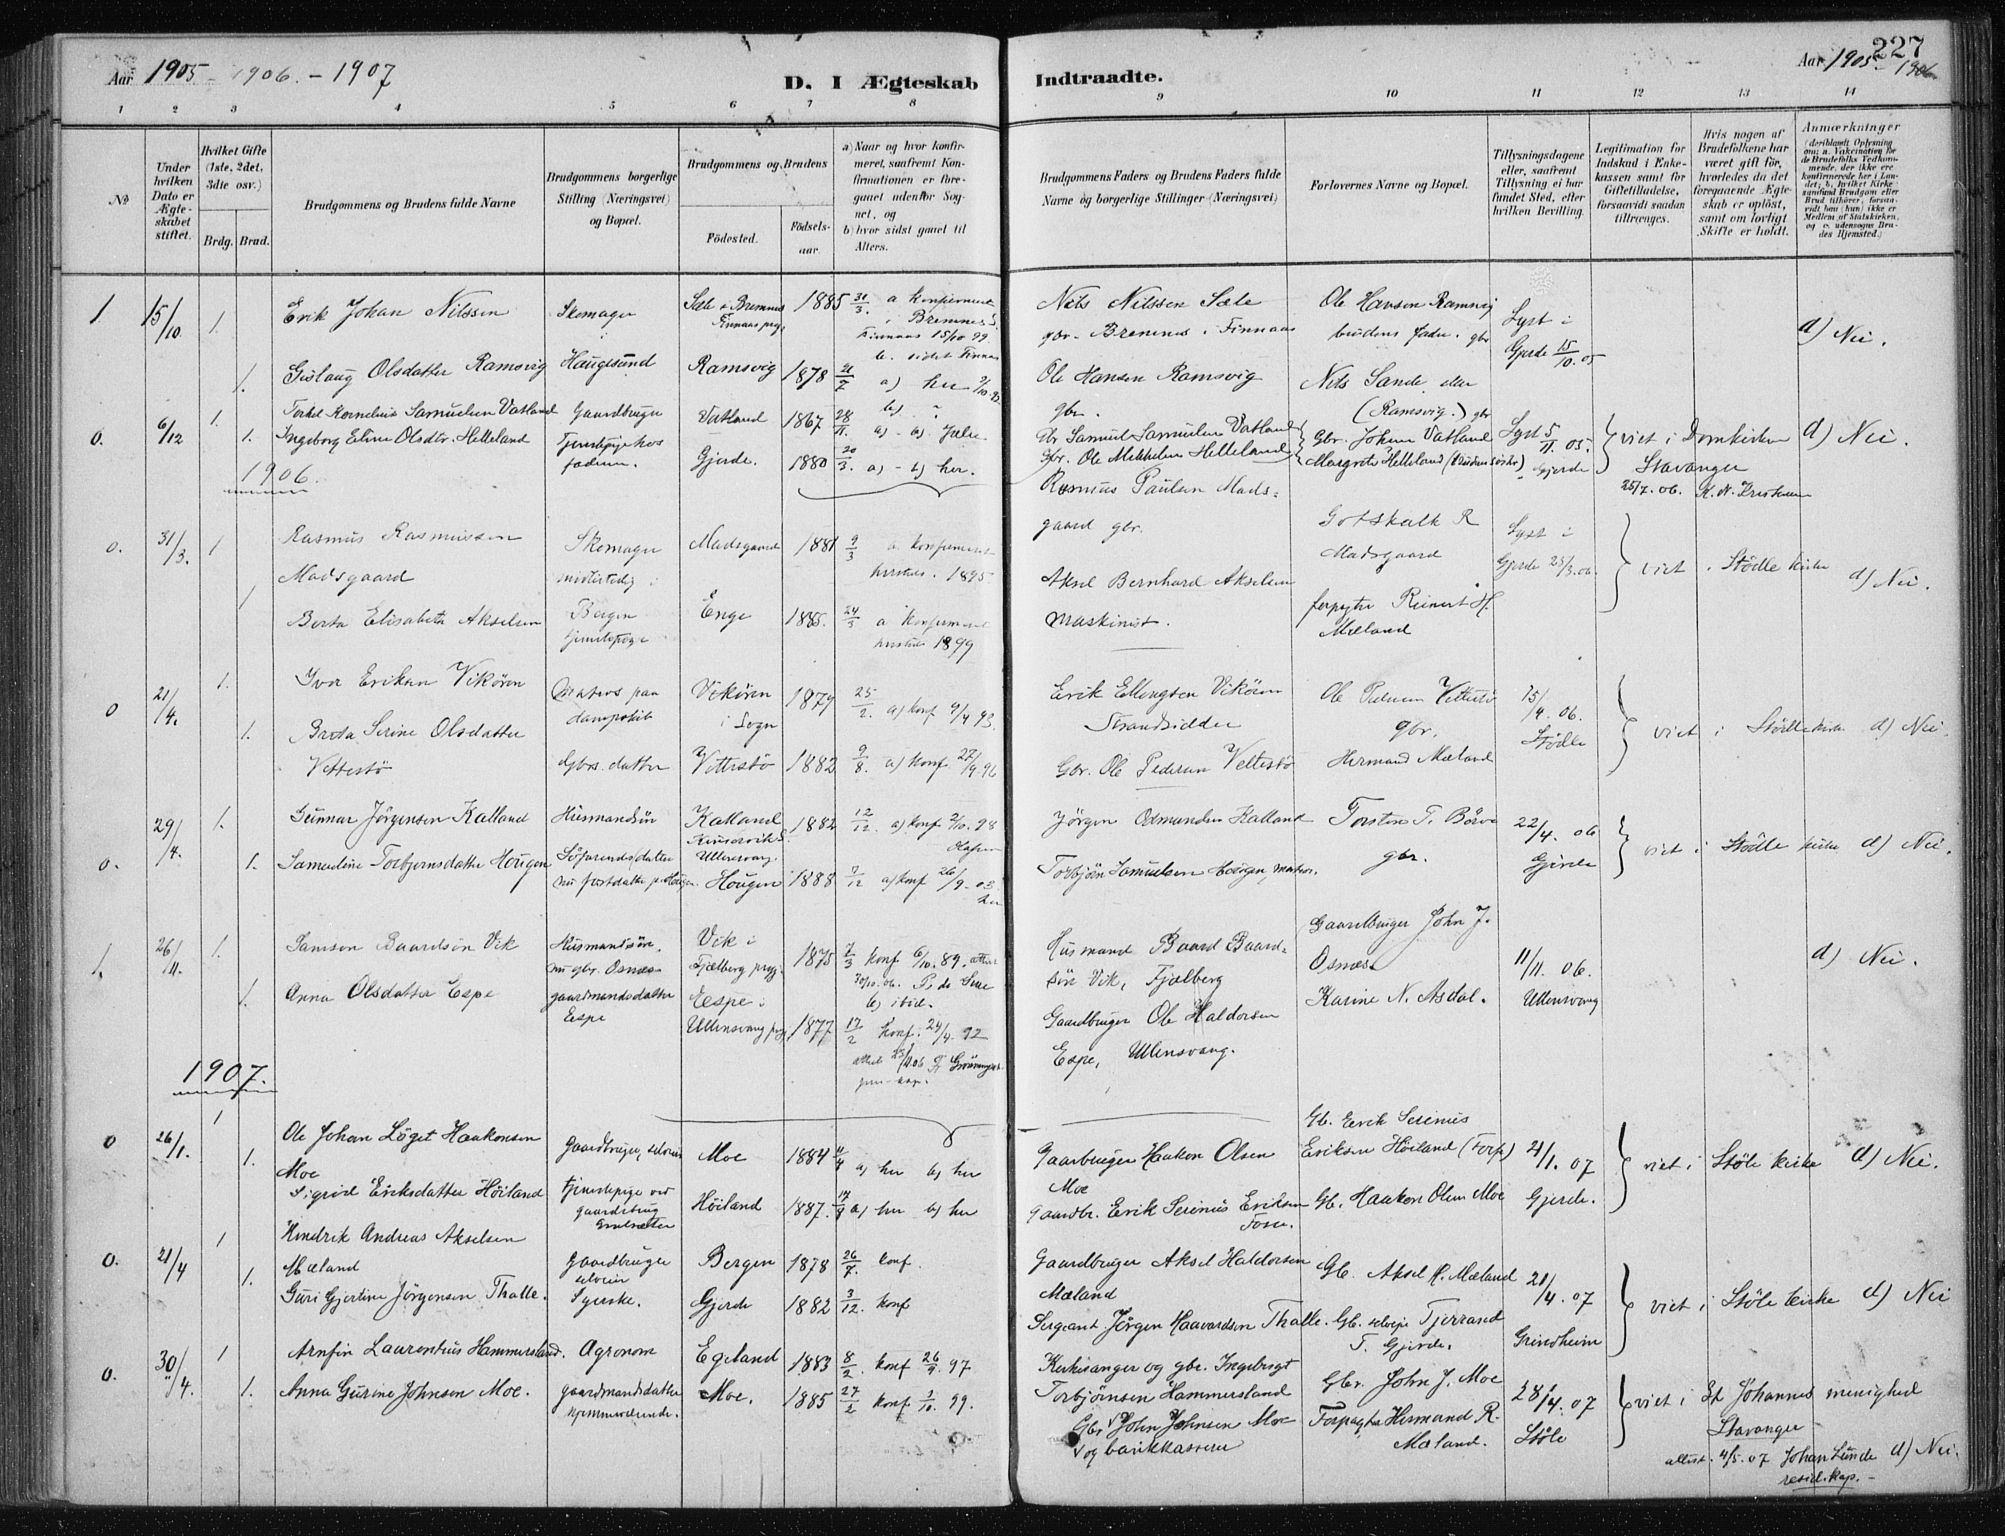 227
Aar 1905 - 1906. - 1907
D. I Ægteskab
Indtraadte.
Aar 1905 - 1906
1 2 3 4 5 6 7 8 9 10 11 12 13 14
No
Under hvilken Dato er Ægteskabet stiftet.
Hvilket Gifte (1ste, 2det, 3die osv.)
Brdg. Brud.
Brudgommens og Brudens fulde Navne
Brudgommens borgerlige Stilling (Næringsvei) og Bopæl.
Brudgommens og Brudens
Födested.
Födselsaar
a) Naar og hvor konfirmeret, saafremt Konfirmationen er foregaaet udenfor Sognet, og
b) hvor sidst gaaet til Alters.
Brudgommens Faders og Brudens Faders fulde Navne og borgerlige Stillinger (Næringsvei)
Forlovernes Navne og Bopæl.
Tillysningsdagene eller, saafremt Tillysning ei har fundet Sted, efter hvilken Bevilling.
Legitimation for Indskud i Enkekassen samt for Giftetilladelse, forsaavidt saadan tiltrænges.
Hvis nogen af Brudefolkene har været gift før, hvorledes da det foregaaende Ægteskab er oplöst, samt om lovligt Skifte er holdt.
Anmærkninger
1. 15/10. 1. Erik Johan Nilssen Skomager i Sæle i Bremnes Finnaas prg. 1885 31/3. a konfirmeret i Bremnes S. Finnaas 15/10 99 b. sidst Finnaas
Nils Nilssen Sæle gbr. Bremnes i Finnaas
Ole Hansen Ramsvig brudens fader. gbr
Lyst i Gjerde 15/10.05
d) Nei.
1. Gislaug Olsdatter Ramsvig Haugesund Ramsvig 1878 21/7 a) her 2/10.92 b) "
Ole Hansen Ramsvig gbr.
Nils Sande (Ramsvig.) gbr
0. 6/12 1. Torkel Kornelius Samuelsen Vatland Gaardbruger Vatland 1867 28/11. a) - b) Jælse
1. Ingeborg Eline Olsdtr. Helleland Tjenestepige hos faderen. Gjerde. 1880 20/3. a) - b) her.
Gbr Samuel Samuelsen Vatland
Gbr. Ole Mikkelsen Helleland
Gbr. Johan Vatland
Margrete Helleland (brudens søster)
Lyst 5/11 05. Gjerde
viet i Domkirken Stavanger 25/7. 06. K. N. Kristensen
d) Nei.
1906.
0. 31/3. 1 Rasmus Rasmussen Madsgaard Skomager midlertidig i Madsgaard 1881 9/3 a konfirmeret hersteds. 1895
Rasmus Paulsen Madsgaard gbr.
Gotskalk R Madsgaard
Lyst i Gjerde 25/3.06
viet i Stödle kirke d) Nei.
1 Berta Elisabeta Akselsen Bergen tjenestepige Enge 1885. 24/3 a konfirmeret hersteds 1899
Aksel Bernhard Akselsen Maskinist.
forpagter Reinert H. Mæland
0 21/4. 1. Ivar Eriksen Vikören Matros paa dampskib Vikören i Sogn 1879 25/2. a) konf 9/4 93.
Erik Ellingsen Vikören Strandsidder
Ole Pedersen Vettestö gbr.
15/4. 06. Stödle
viet i Stödle kirke d) Nei.
1. Brita Serine Olsdatter Vettestö Gbrs. datter Vettestö 1882 9/8. a) konf 27/9.96
Gbr. Ole Pedersen Vettestö
Hermand Mæland
0. 29/4. 1. Gunnar Jörgensen Kalland Husmandsön Kalland Kinservik S. Ullensvang 1882 12/12. a) konf 2/10. 98
Jörgen Odmundsen Kalland
Torsten T. Börve gbr.
22/4. 06 Gjerde
viet i Stödle kirke d) Nei.
1. Samueline Torbjornsdatter Hougen Söfarendes datter Hougen 1888 7/12 a) konf 26/9. 03 her
Torbjörn Samuelsen Hougen, matros.
1. 26/11. 1. Samson Baardsön Vik Husmandsön. nu gbr. Osnæs Vik i Fjælberg prg. 1875 7/3 konf 6/10. 89.
Husmand Baard Baardsön Vik, Fjælberg
Gaardbruger John J. Osnæs.
11/11. 06. Ullensvang
d) Nei.
1. Anna Olsdatter Espe gaardmandsdatter Espe Espe i Ullensvang prg. 1877 17/2 konf. 24/4. 92
Gaardbruger Ole Haldorsen Espe, Ullensvang.
Karine N. Asdal.
1907.
0 26/1. 1 Ole Johan Löget Haakonsen Moe gaardbruger, selveier Moe 1884 a) her b) her
Gaarbruger Haakon Olsen Moe
Gb. Erik Serinius Eriksen Höiland
21/1. 07 Gjerde.
viet i Støle kirke d) Nei.
1. Sigrid Eriksdatter Höiland tjenestepige ved gaardsbrug Höiland 1887. a) her b) her
Gaardbr. Erik Serinius Eriksen
Gb. Haakon Olsen Moe
0. 21/4 1 Hendrik Andreas Akselsen Mæland Gaardbruger selveier Bergen 1878 26/7. konf.
Gaardbruger Aksel Haldorsen Mæland
Gb. Aksel H. Mæland
21/4. 07 Grindheim
viet i Støle kirke d) Nei
1. Guri Gjertine Jörgensen Thalle. Syerske. Gjerde 1882 3/12. konf
Sergeant Jörgen Haavardsen Thalle.
Gb. selveier Tjerrand T. Gjerde.
0. 30/4. 1 Arnfin Laurentius Hammersland. Agronom Egeland 1883 8/2. konf 26/9. 97
Kirkesanger og gbr. Ingebrigt Torbjönsen Hammersland
Gbr. John J. Moe
28/4. 07 Støle
viet i St Johannes menighed Stavanger
1. Anna Gurine Johnsen Moe. gaardmandsdatter hjemmeværende. Moe. 1885 27/2 konf 1/10. 99.
Gbr John Johnsen Moe og bankkasserer
Forpagter Hermand R. Mæland.
attest. 4/5. 07 Johan Lunde resid. kap. - d) Nei.